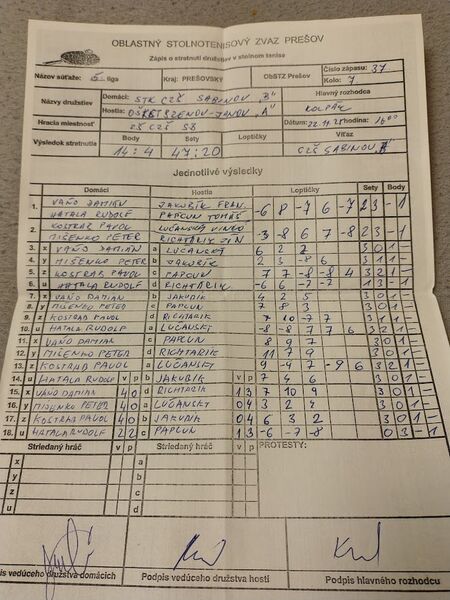 OBLASTNÝ STOLNOTENISOVÝ ZVAZ PREŠOV
Zápis o stretnutí družstiev v stolnom tenise
Názov súťaže: 5. liga Kraj: PREŠOVSKÝ ObSTZ Prešov Číslo zápasu: 37
Kolo: 7
Názvy družstiev Domáci: STK CZŠ SABINOV "B" Hlavný rozhodca
Hostia: "A" KOLPÁK
Hracia miestnosť ZŠ CZŠ SB Dátum: hodina: 16 00
Výsledok stretnutia Body Sety Loptičky Víťaz
14:4 47:20 CZŠ SABINOV
Jednotlivé výsledky
Domáci Hostia Loptičky Sety Body
1. VAŇO DAMIÁN JAKUBÍK FRAN. -6 8 -7 6 -7 2 3 -1
HATALA RUDOLF PAPCUN TOMÁŠ
2. KOSTRAB PAVOL LUČANSKÝ -3 -8 6 7 -8 2 3 -1
MIŠENKO PETER RICHTÁRIK
3. x VAŇO DAMIÁN a LUČANSKÝ 6 2 2 3 0 1 -
4. y MIŠENKO PETER b JAKUBÍK 2 3 -8 6 3 1 1 -
5. z KOSTRAB PAVOL c PAPCUN 7 7 -8 -8 4 3 2 1 -
6. u HATALA RUDOLF d RICHTÁRIK -6 -6 2 1 3 - 1
7. x VAŇO DAMIÁN b JAKUBÍK 4 2 5 3 0 1 -
8. y MIŠENKO PETER c PAPCUN 7 8 3 3 0 1 -
9. z KOSTRAB PAVOL d RICHTÁRIK 7 10 3 0 1 -
10. u HATALA RUDOLF a LUČANSKÝ -8 -8 7 7 6 3 2 1 -
11. x VAŇO DAMIÁN c PAPCUN 8 9 7 3 0 1 -
12. y MIŠENKO PETER d RICHTÁRIK 11 7 9 3 0 1 -
13. z KOSTRAB PAVOL a LUČANSKÝ 9 -4 7 -9 6 3 2 1 -
14. u HATALA RUDOLF v p b JAKUBÍK v p 7 4 6 3 0 1 -
15. x VAŇO DAMIÁN 4 0 d RICHTÁRIK 1 3 7 10 9 3 0 1 -
16. y MIŠENKO PETER 4 0 a LUČANSKÝ 0 4 3 2 4 3 0 1 -
17. z KOSTRAB PAVOL 4 0 b JAKUBÍK 0 4 6 3 2 3 0 1 -
18. u HATALA RUDOLF 2 2 c PAPCUN 1 3 -6 -7 -8 0 3 - 1
Striedaný hráč v p Striedaný hráč v p PROTESTY:
x a
y b
z c
u d
Podpis vedúceho družstva hostí Podpis hlavného rozhodcu